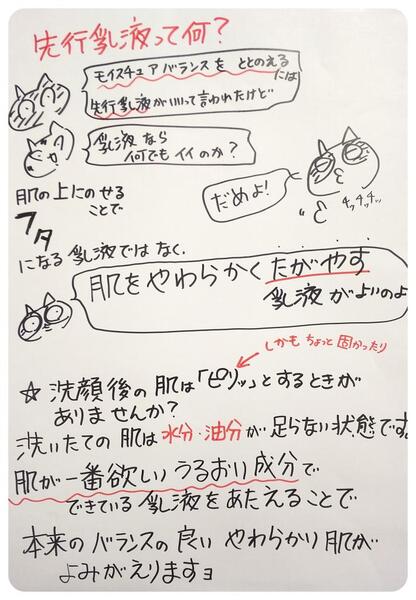 先行乳液って何？
モイスチュアバランスを ととのえる
には
先行乳液がいいって言われたけど
乳液なら
何でもイイのか？
だめよ！
チッチッチッ
肌の上にのせる
ことで
フタ
になる乳液ではなく、
肌をやわらかくたがやす
乳液がよいのよ
しかもちょっと固かったり
☆ 洗顔後の肌は「ピリッ」とするときが
ありませんか？
洗いたての肌は水分・油分が足らない状態です。
肌が一番欲しいうるおい成分で
できている乳液をあたえることで
本来のバランスの良いやわらかい肌が
よみがえりますヨ